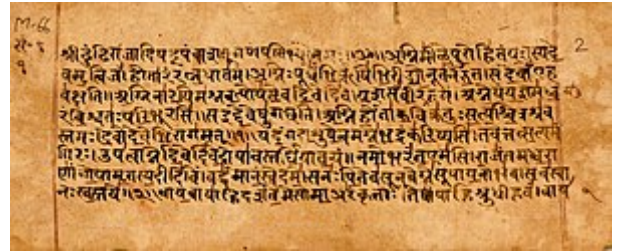 M-66
2
श्री नमः॥ अग्निमीळेपुरोहितंयज्ञस्यदे
वमृत्विजं। होतारंरत्नधातमं। अग्निःपूर्वेभिर्ऋषिभिरीड्योनूतनैरुत। सदेवाँएह
वक्षति॥ अग्निनारयिमश्नवत्पोषमेवदिवेदिवे। यशसंवीरवत्तमं। अग्नेयंयज्ञमध्व
रंविश्वतःपरिभूरसि॥ सइद्देवेषुगच्छति। अग्निर्होताकविक्रतुःसत्यश्चित्रश्रव
स्तमः। देवोदेवेभिरागमत्॥१॥ यदंगदाशुषेत्वमग्नेभद्रंकरिष्यसि। तवेत्तत्सत्यमं
गिरः। उपत्वाग्नेदिवेदिवेदोषावस्तर्धियावयं॥ नमोभरंतएमसि। राजंतमध्वरा
णांगोपामृतस्यदीदिविं। वर्धमानंस्वेदमे। सनःपितेवसूनवेग्नेसूपायनोभव। सचस्वा
नःस्वस्तये॥२॥ वायवायाहिदर्शतेमेसोमाअरंकृताः। तेषांपाहिश्रुधीहवं। वाय